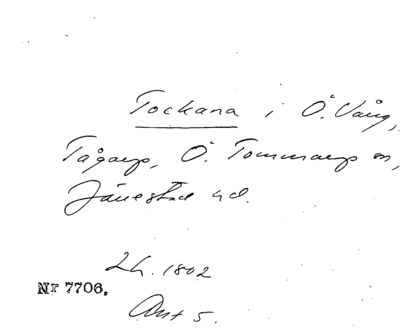 Tockana i Ö. Vång,
Tågarp, Ö. Tommarp sn,
Järrestad hd.
Lh. 1802
Nr 7706.
Ant 5.